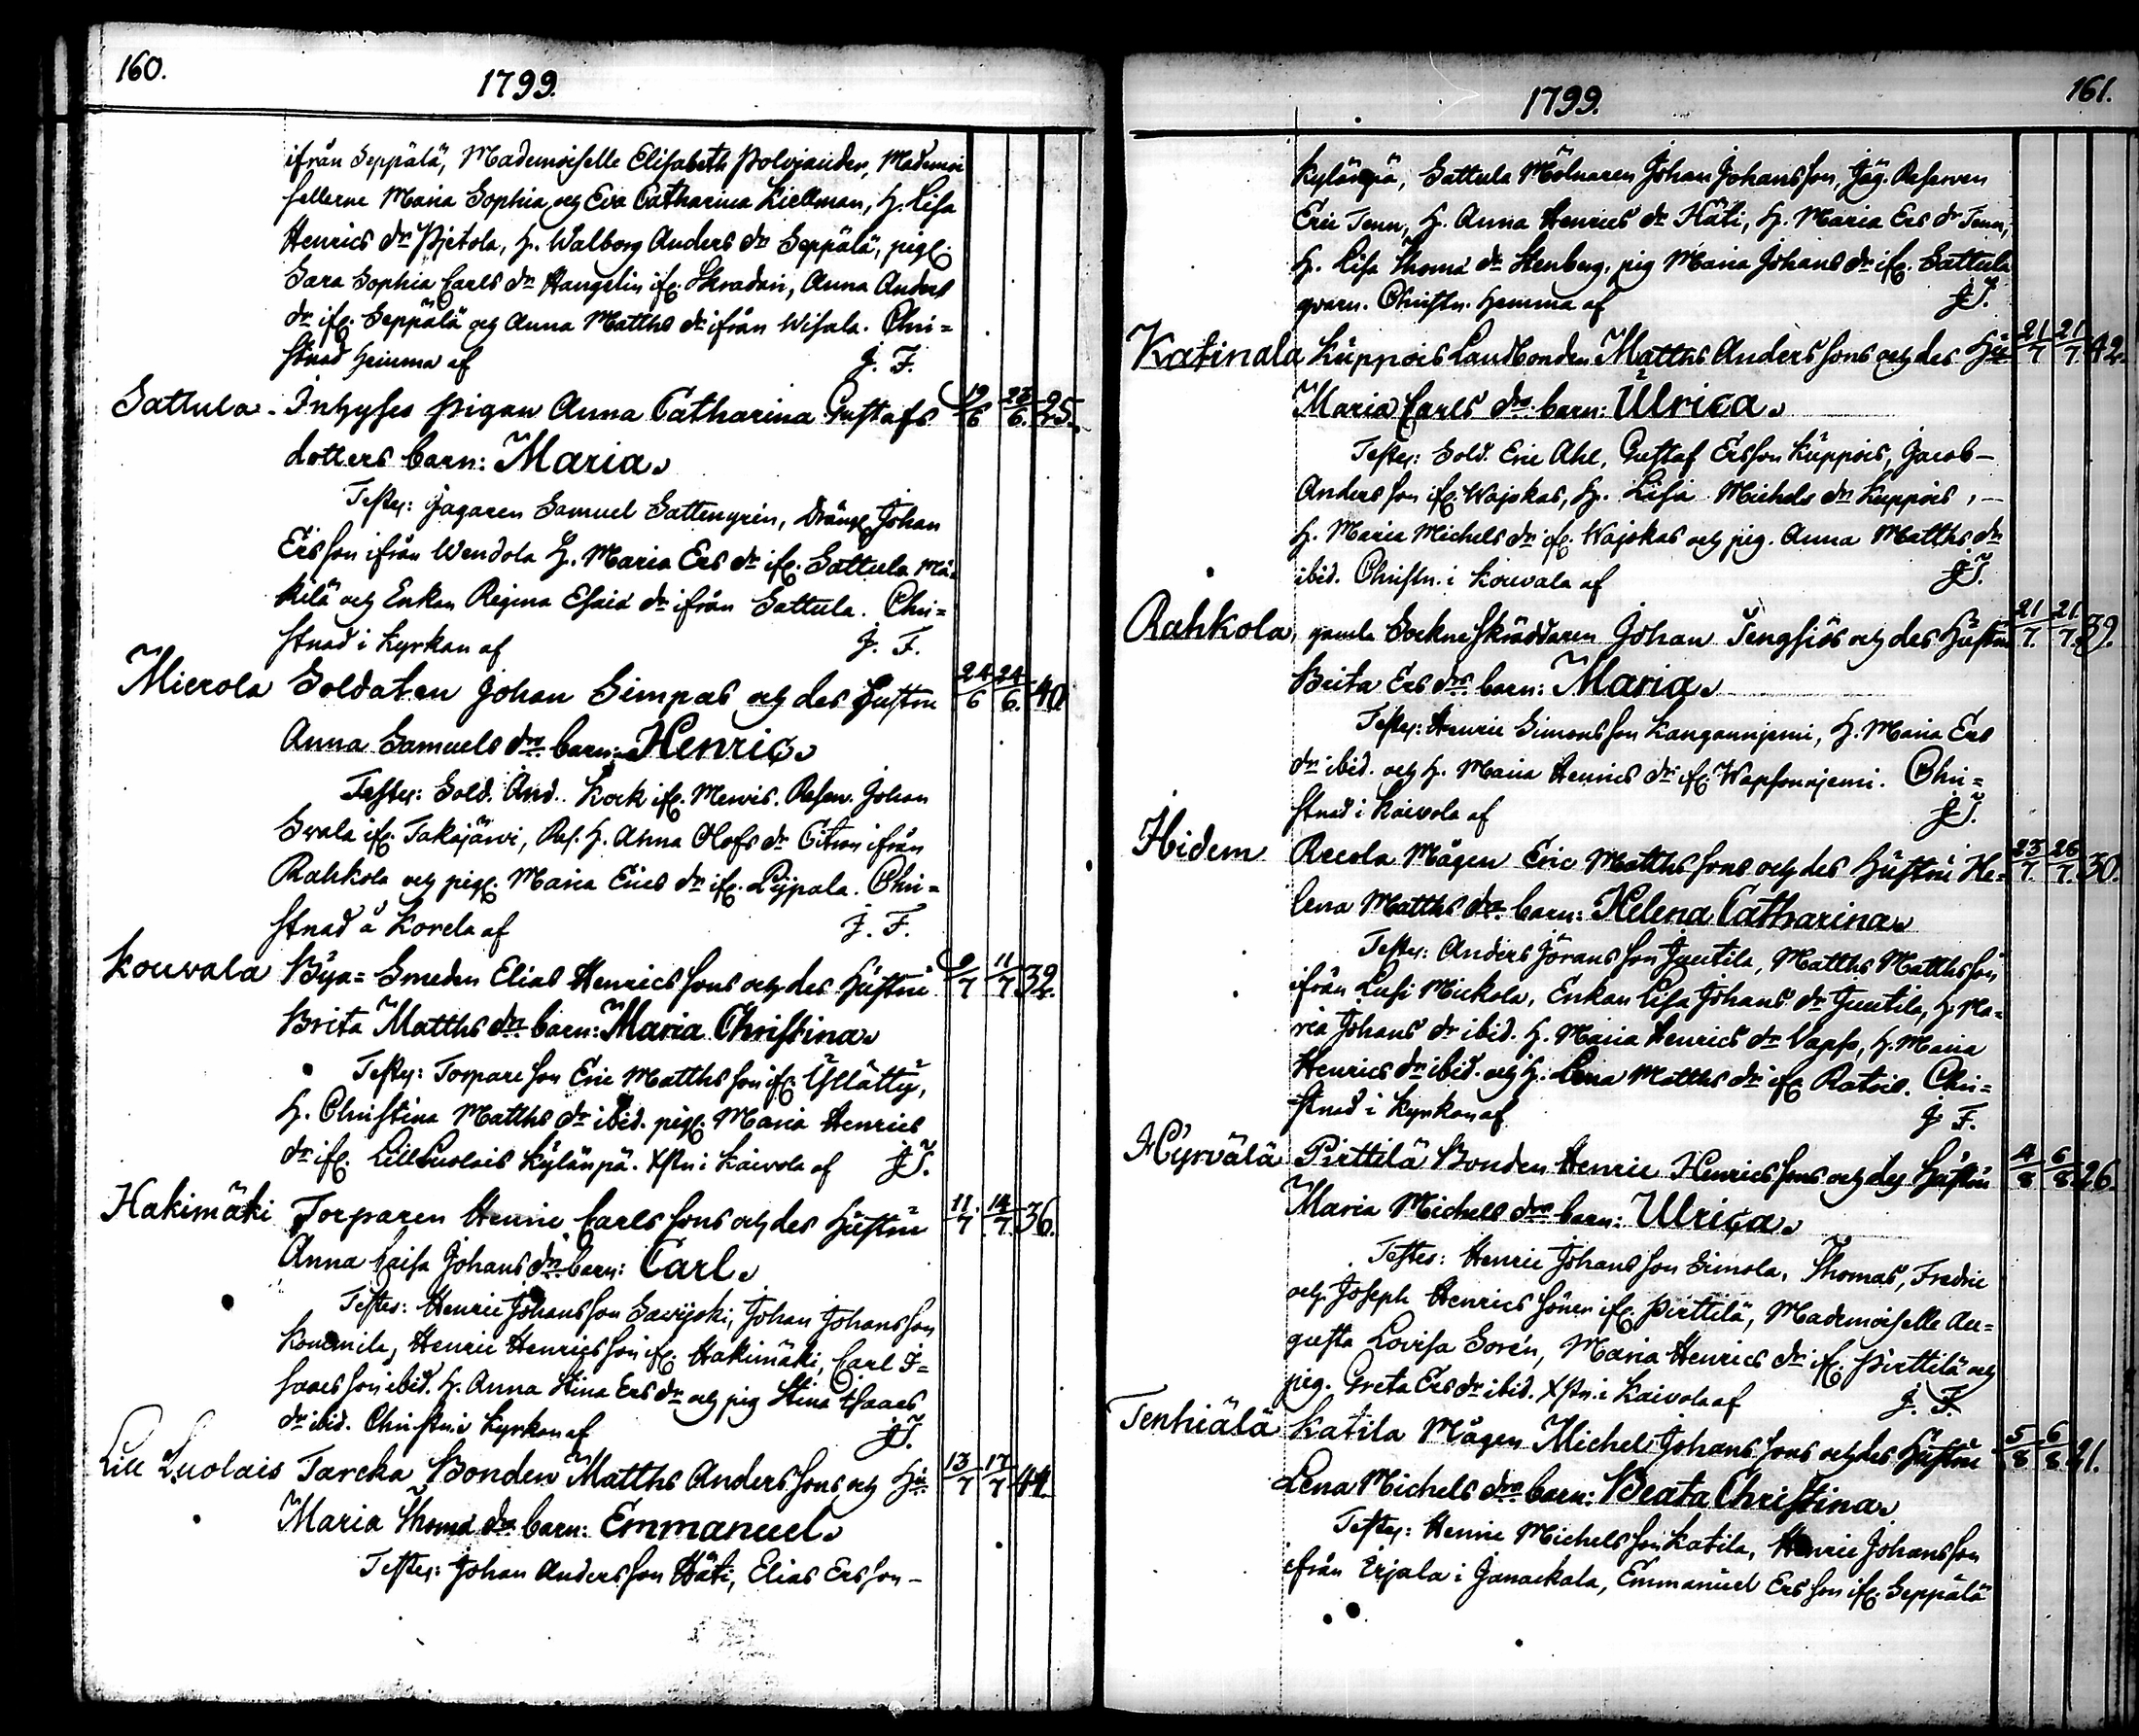 160.
1799.
ifrån Seppälä, Mademoiselle Elisabeth Polviander, Mademoi
sellerne Maria Sophia och Eva Catharina Kiellman, H. Lisa
Henrics dr Pietola, H. Walborg Anders dr Seppälä, pig.
Sara Sophia Carls dr Hangelin ifr. Skradari, Anna Anders
dr ifr. Seppälä och Anna Matths dr ifrån Wisala. Chri=
stnad hemma af J. F.
Sattula. Inhyses pigan Anna Catharina Gustafs 19/6 23/6. 25.
dotters barn: Maria.
Testes: jägaren Samuel Sattengrin, Dräng. Johan
Ersson ifrån Wendola H. Maria Ers dr ifr. Sattula Mä-
kilä och Enkan Regina Esaiæ dr ifrån Sattula. Chri=
stnad i Kyrkan af J. F.
Mierola Soldaten Johan Simpas och des Hustru 24/6 24/6. 40.
Anna Samuels drs barn: Henric.
Testes: Sold. And. Kock ifr. Mervis. Reserv. Johan
Svala ifr. Takajärvi, Res. H. Anna Olofs dr Citron ifrån
Rahkola och pig. Maria Erics dr ifr. Lijpala. Chri=
stnad å Korela af J. F.
Kouvala Bya=Smeden Elias Henricssons och des Hustru 9/7 11/7 32.
Brita Matths drs barn: Maria Christina.
Testes: Torpare son Eric Matthsson ifr. Yllätty,
H. Christina Matths dr ibid. pig. Maria Henrics
dr ifr. Lill Luolais Kylänpä. Xstn i Kaivola af JF.
Hakimäki Torparen Henric Carlssons och des Hustru 11/7. 14/7. 36.
Anna Caisa Johans drs barn: Carl.
Testes: Henric Johansson Savijoki, Johan Johansson
Henric Henricsson ifr. Hakimäki, Carl I=
saacsson ibid. H. Anna Stina Ers dr och pig Stina Isaacs
dr ibid. Christn. i Kyrkan af JF.
Lill Luolais Tarcka Bonden Matths Anderssons och Hu 13/7 17/7 44.
Maria Thomæ drs barn: Emmanuel.
Testes: Johan Andersson Häti, Elias Ersson –
1799.
161.
Kylänpä, Sattula Mölnaren Johan Johansson, Jäg. Reserven
Eric Tenn, H. Anna Henrics dr Häti, H. Maria Ers dr Tenn,
H. Lisa Thomæ dr Stenberg, pig Maria Johans dr ifr. Sattula
qvarn. Christn. hemma af JF.
Katinala Kuppois Landbonden Matths Anderssons och des Hu 21/7 21/7. 42.
Maria Carls drs barn: Ulrica.
Testes: Sold. Eric Ahl, Gustaf Ersson Kuppois, Jacob –
Andersson ifr. Wajokas, H. Lisa Michels dr Kuppois, –
H. Maria Michels dr ifr. Wajokas och pig. Anna Matths dr
ibid. Christn. i Kouvala af JF.
Rahkola, gamla Sockne skräddaren Johan Tengsiös och des Hustru 21/7. 21/7. 39.
Brita Ers drs barn: Maria.
Testes: Henric Simonsson Kangannjemi, H. Maria Ers
dr ibid. och H. Maria Henrics dr ifr. Wapsonnjemi. Chri=
stnad i Kaivola af JF.
Hidem Reeola Mågen Eric Matthssons och des Hustru He= 23/7. 26/7. 30.
lena Matths drs barn: Helena Catharina.
Testes: Anders Göransson Juutila, Matths Matthsson
ifrån Lusi Mickola, Enkan Lisa Johans dr Juutila, H. Ma=
ria Johans dr ibid. H. Maria Henrics dr Vapso, H. Maria
Henrics dr ibid. och H. Lena Matths dr ifr. Ratois. Chri=
stnad i Kyrkan af J F.
Hyrvälä Pirttilä Bonden Henric Henricssons och des Hustru 4/8 6/8. 26.
Maria Michels drs barn: Ulrica.
Testes: Henric Johansson Simola, Thomas, Fredric
och Joseph Henrics söner ifr. Pirttilä, Mademoiselle Au=
gusta Lovisa Sorén, Maria Henrics dr ifr. Pirttilä och
pig. Greta Ers dr ibid. Xstn. i Kaivola af J. F.
Tenhiälä Katila Mågen Michel Johanssons och des Hustru 5/8 6/8 21.
Lena Michels drs barn: Beata Christina.
Testes: Henric Michelsson Katila, Henric Johansson
ifrån Erjala i Janackala, Emmanuel Ersson ifr. Seppälä